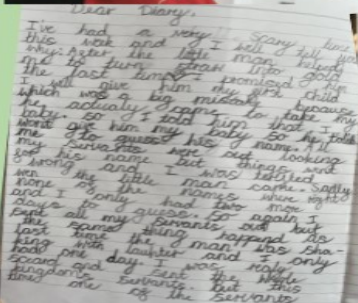 Dear Diary,
I've had a very scary time
this week and I will tell you
why. After the little man helped
me to turn straw into gold
the last time, I promised him
I will give him my first child
which was a big mistake because
he actualy came to take my
baby. So I told him that I
wont give him my baby so he told
me to guess his name. All
my servants were out looking
for his name but things went
wrong and I was
wen the little man came. Sadly
none of the names where right
and I only had two more
days to guess. So again I
sent all my servants out but
the same thing happend as
last time the man was
king with laughter and I only
had one day. I was realy
scared and sent the whole
kingdoms servants. but this
time one of the servants